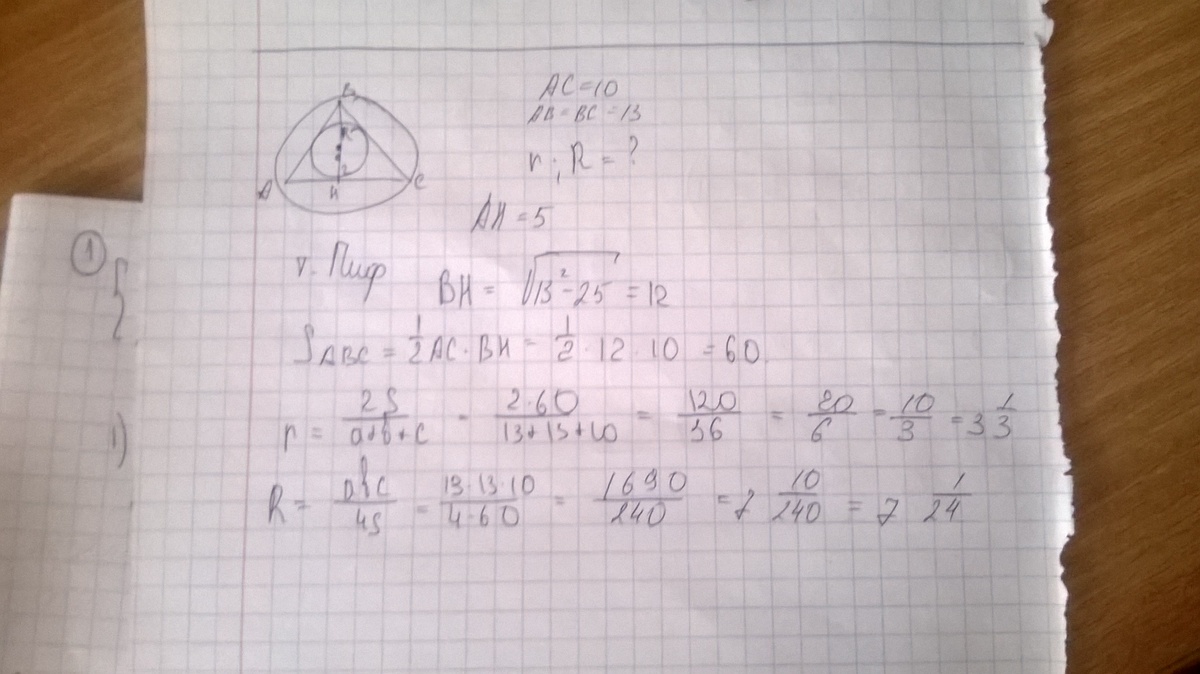 B
R
r
A
H
C
AC = 10
AB = BC = 13
r; R = ?
AH = 5
т. Пиф
BH = √(13² - 25) = 12
S ABC = 1/2 AC · BH = 1/2 · 12 · 10 = 60.
r = 2S/(a+b+c) = 2·60/(13+13+10) = 120/36 = 20/6 = 10/3 = 3 1/3
R = abc/4S = 13·13·10/4·60 = 1690/240 = 7 10/240 = 7 1/24
1
1)